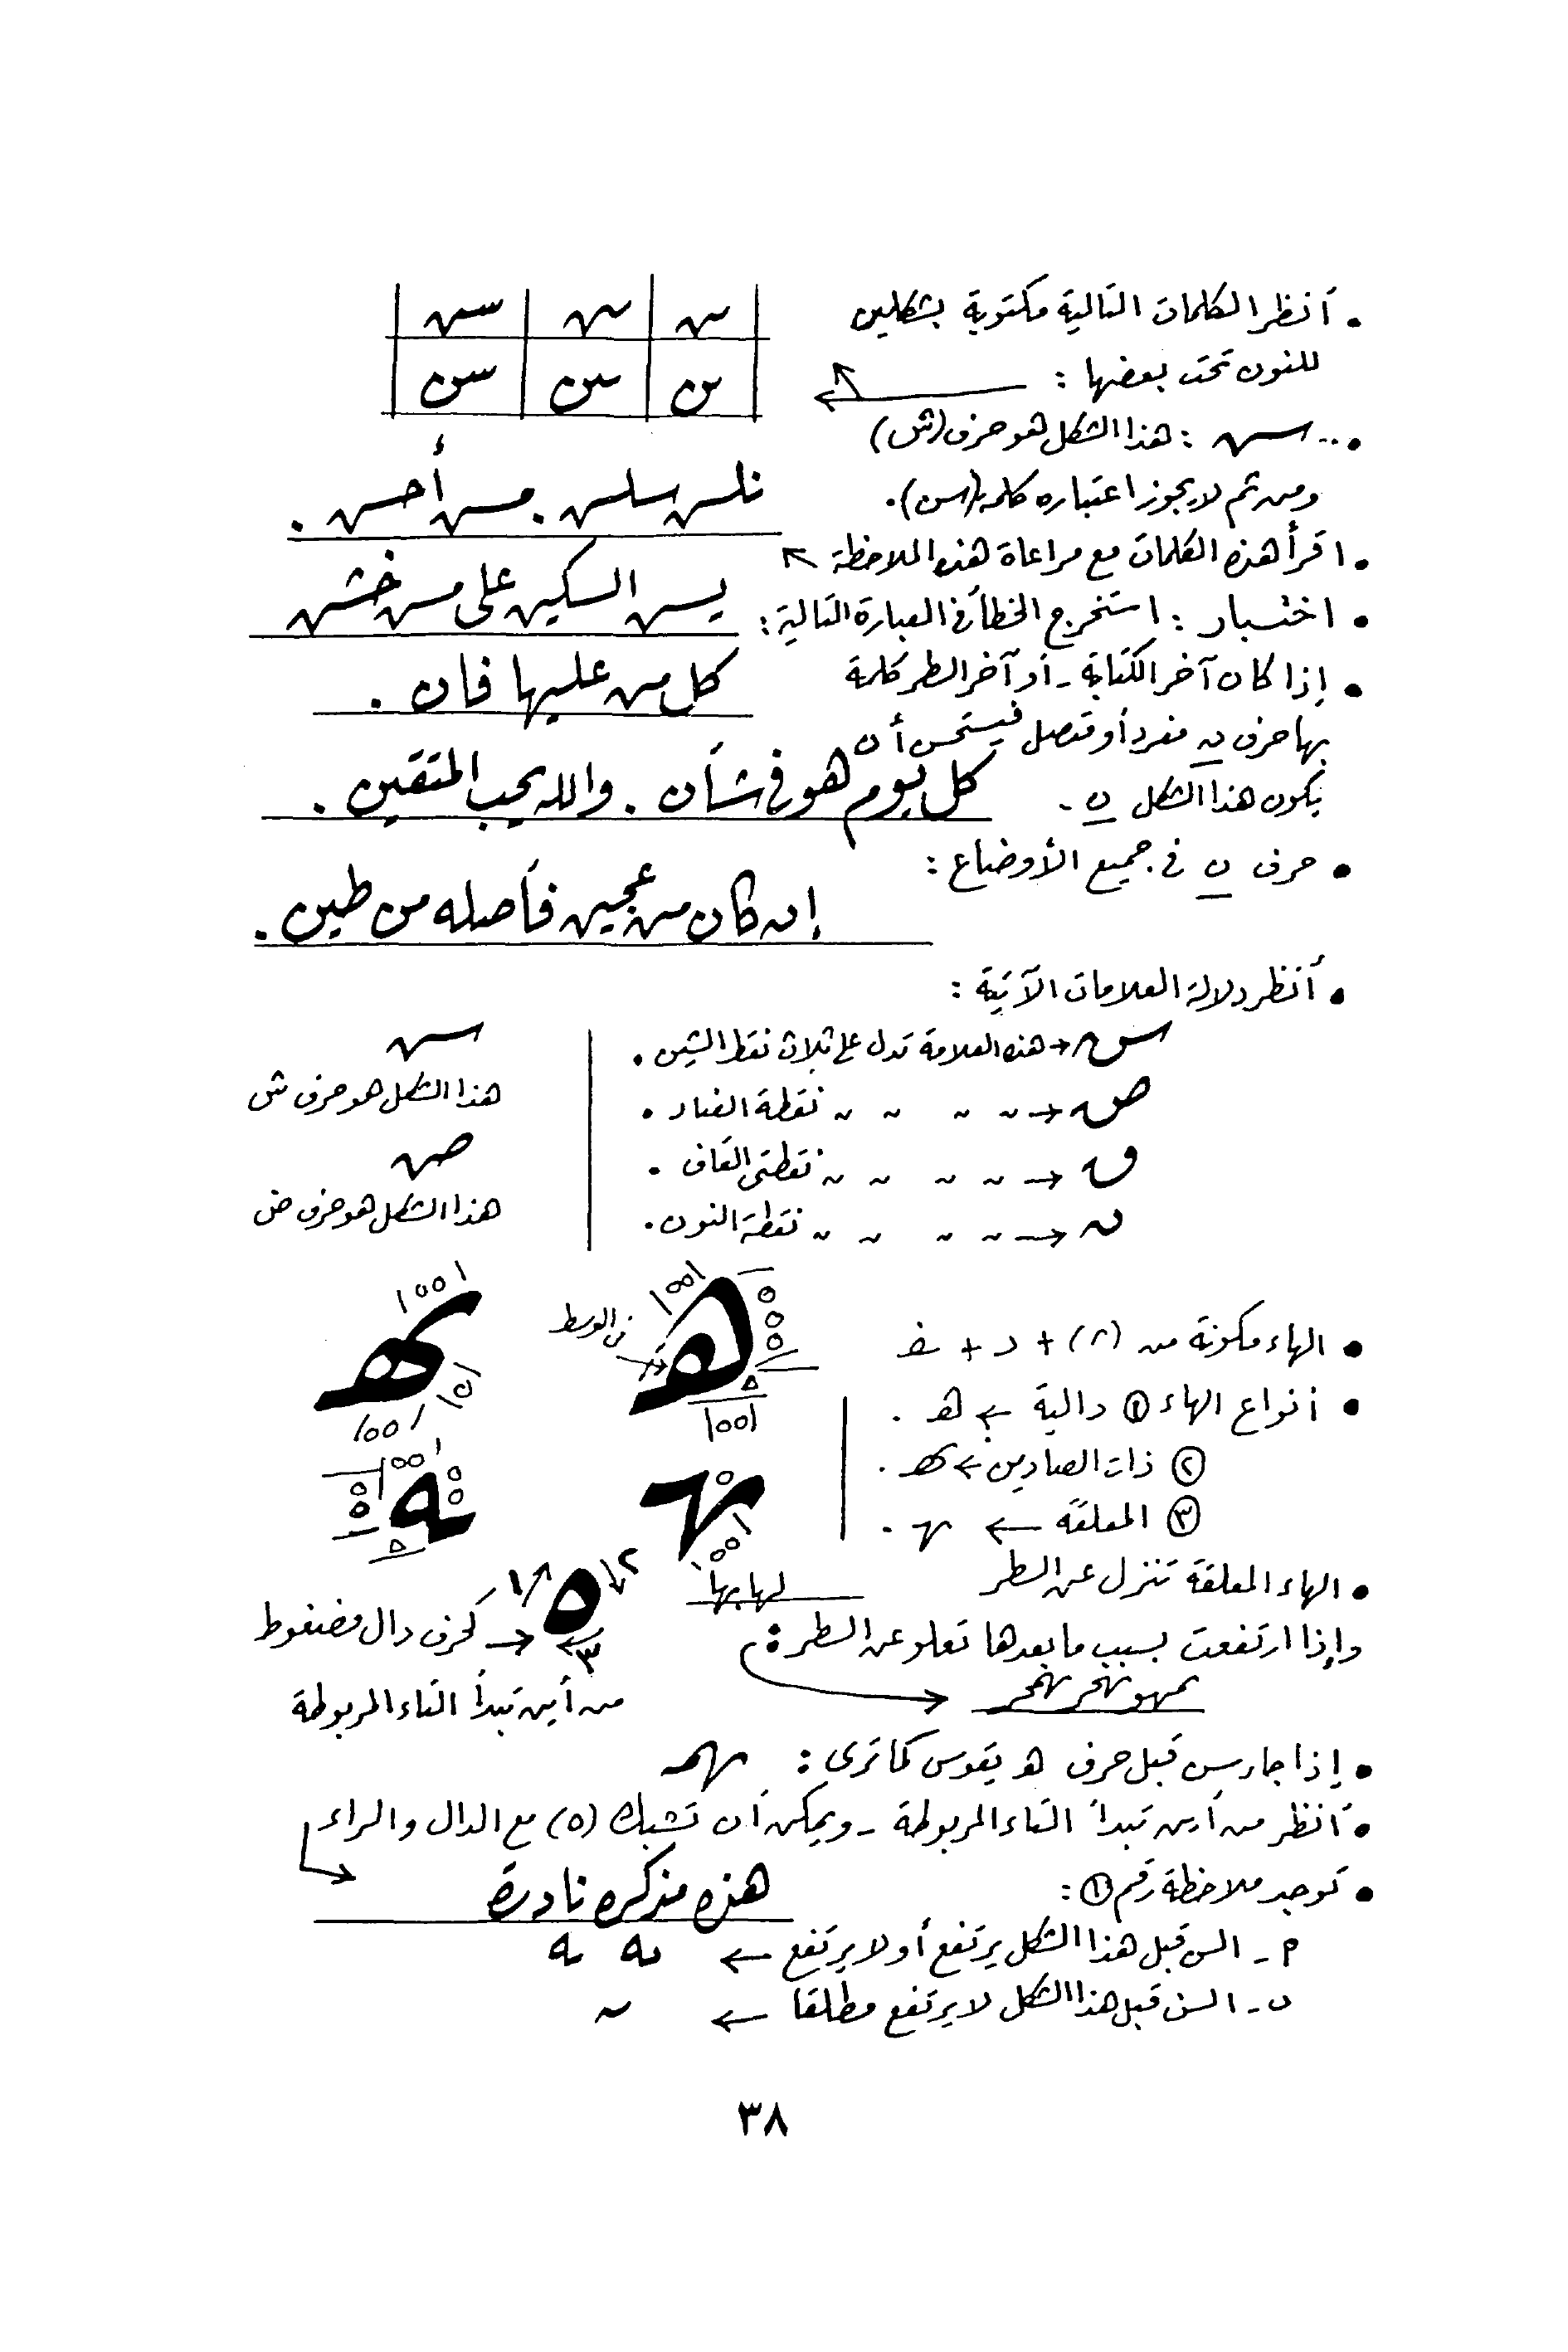 • أنظر الكلمات التالية مكتوبة بشكلين
للنون تحت بعضها :
• .. س : هذا الشكل هو حرف (ش)
ومن ثم لا يجوز اعتباره كلمة (سن).
• اقرأ هذه الكلمات مع مراعاة هذه الملاحظة
• اختبار : استخرج الخطأ في العبارة التالية :
يسن السكين على مسن خشن
• إذا كان آخر الكتابة - أو آخر السطر كلمة
كل من عليها فان .
بها حرف ن مفرد أو متصل فيستحسن أن
يكون هذا الشكل ن -
كل يوم هو في شأن . والله يحب المتقين .
• حرف ن في جميع الأوضاع :
إن كان من عجين فأصله من طين .
• أنظر دلالة العلامات الآتية :
س → هذه العلامة تدل على ثلاث نقط الشين .
هذا الشكل هو حرف ش
ص → " " " " نقطة الضاد .
ق → " " " " نقطتي القاف .
هذا الشكل هو حرف ض
ن → " " " " نقطة النون .
في الوسط
• الهاء مكونة من (٨) + د +
• أنواع الهاء ① دالية ← هـ .
② ذات الصادين ← هـ .
③ المعلقة ← ـهـ .
• الهاء المعلقة تنزل عن السطر
لها بها
وإذا ارتفعت بسبب ما بعدها تعلو عن السطر :
١ ٢ ٣
← كحرف دال مضغوط
من أين تبدأ التاء المربوطة
• إذا جاء سن قبل حرف هـ يقوس كما ترى :
• أنظر من أين تبدأ التاء المربوطة - ويمكن أن تشبك (ه) مع الدال والراء
هذه مذكره نادرة
• توجد ملاحظة رقم ① :
م - السن قبل هذا الشكل يرتفع أو لا يرتفع ← ـه ـه
ن - السن قبل هذا الشكل لا يرتفع مطلقا ←
٣٨